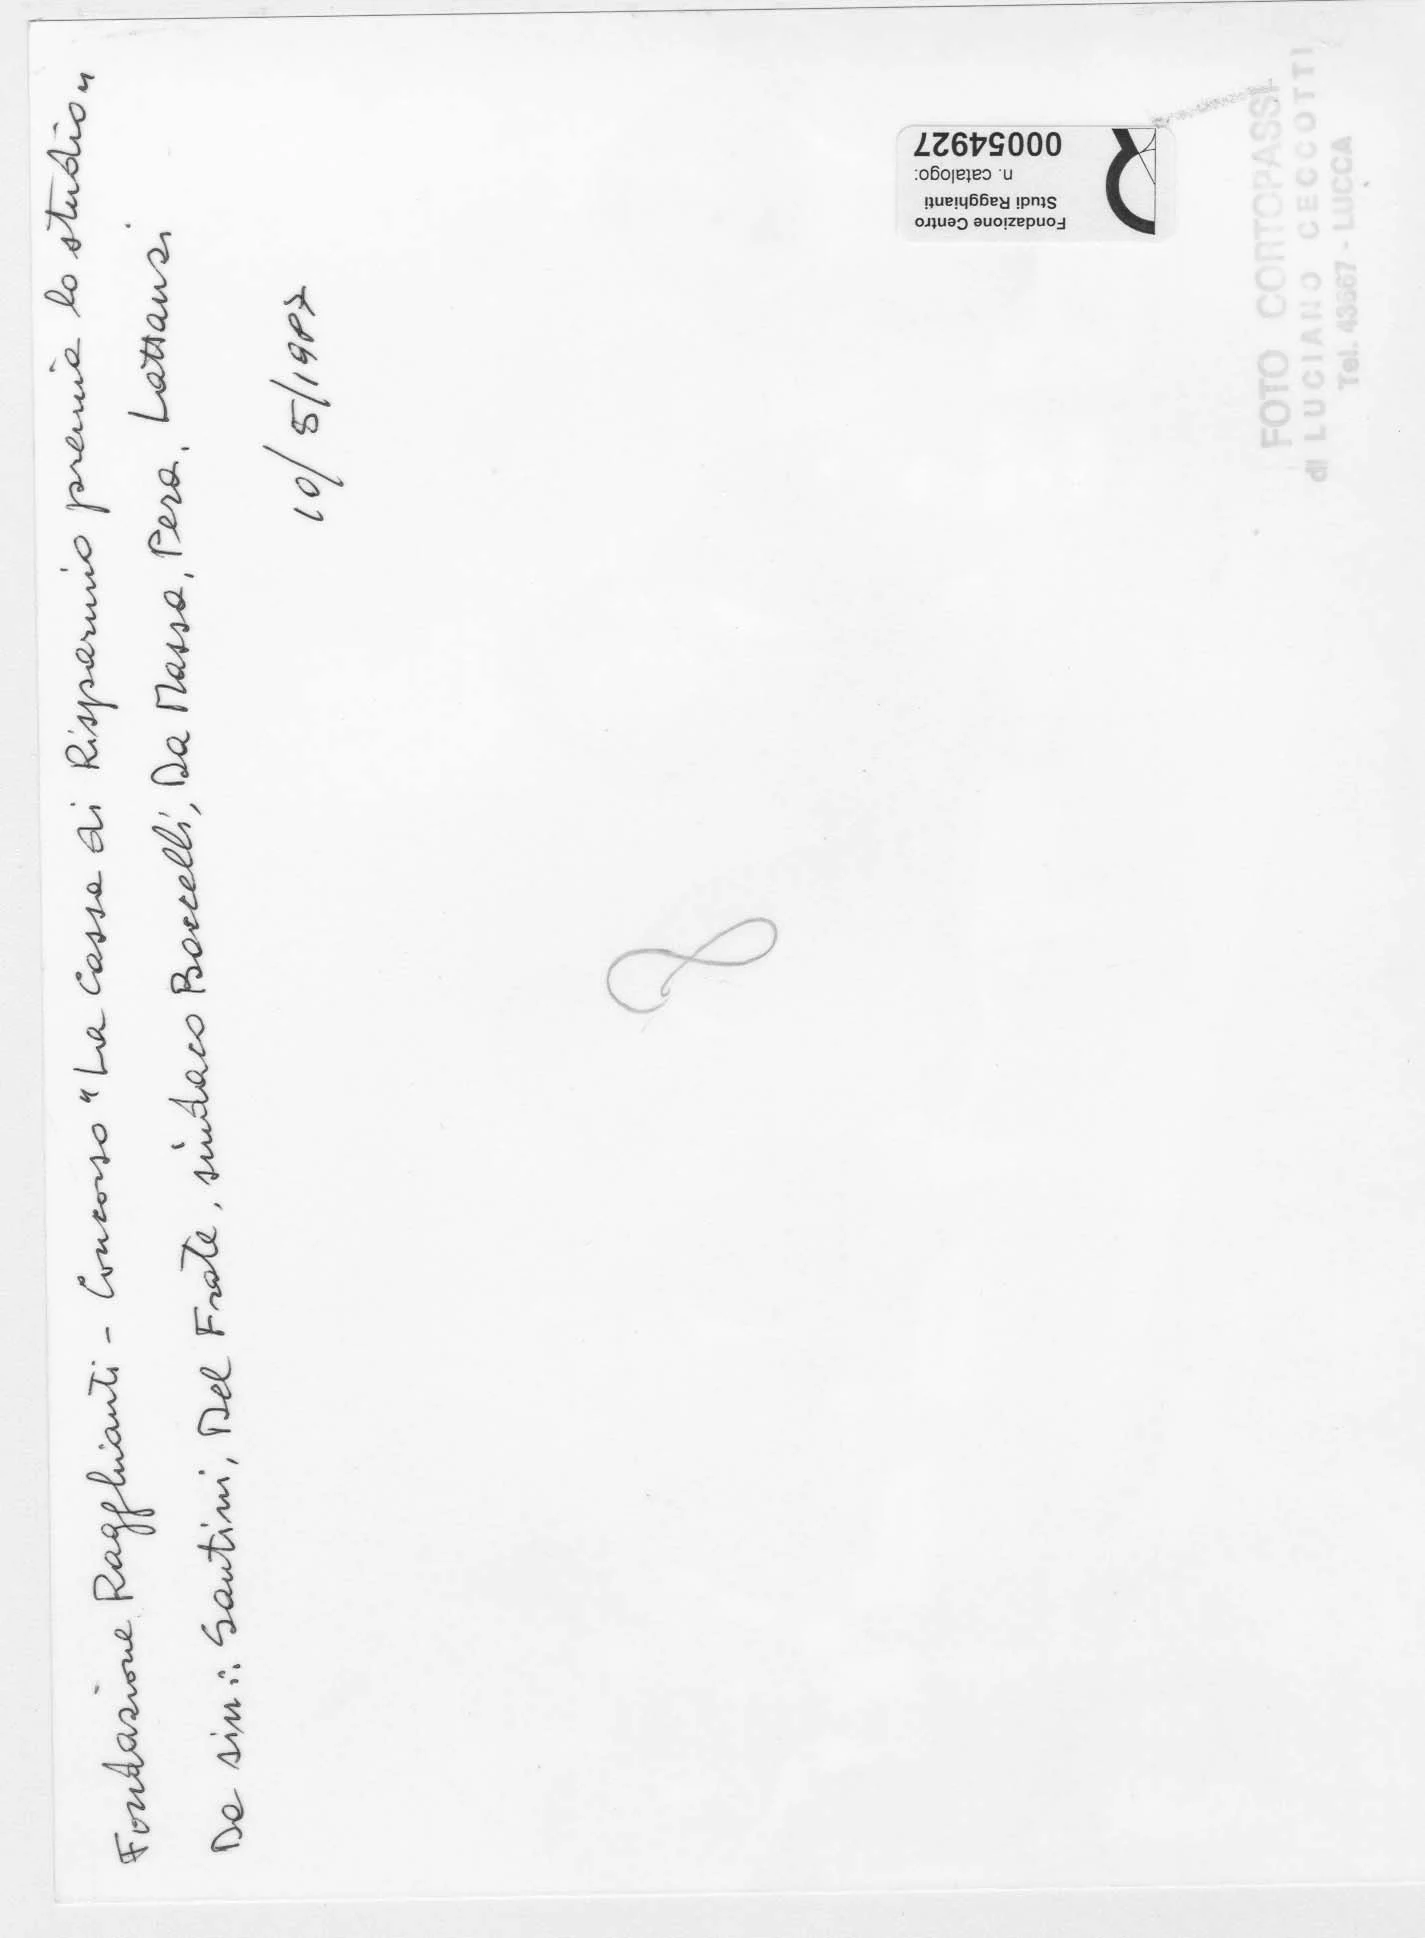 Fondazione Ragghianti - Concorso "La Cassa di Risparmio premia lo studio"
Da sin.: Santini, Del Frate, sindaco Baccelli, Da Massa, Pera, Lattanzi
10/5/1987
8
Fondazione Centro
Studi Ragghianti
n. catalogo:
00054927
FOTO CORTOPASSI
di LUCIANO CECCOTTI
Tel. 43667 - LUCCA